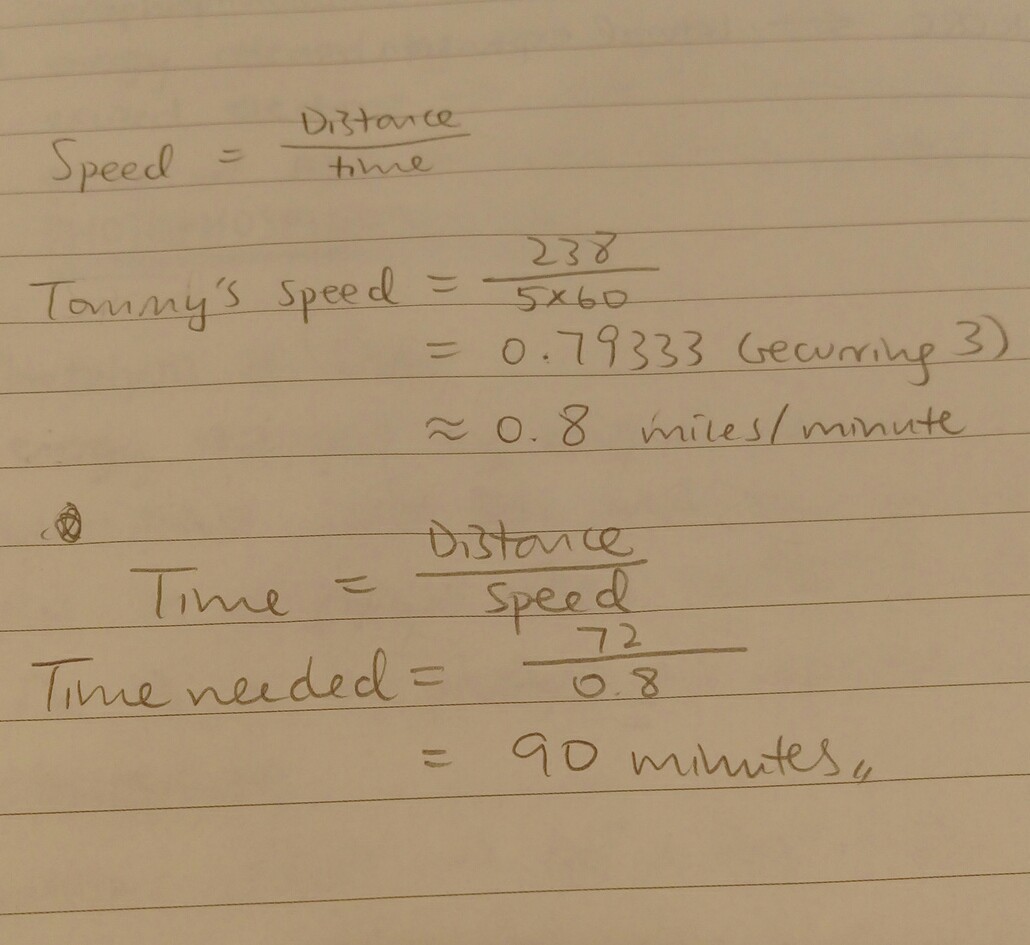 Speed = Distance / time
Tommy's speed = 238 / 5×60
= 0.79333 (recurring 3)
≈ 0.8 miles/minute
Time = Distance / Speed
Time needed = 72 / 0.8
= 90 minutes,,